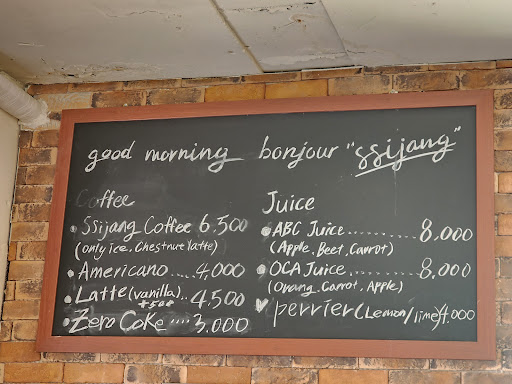 good morning bonjour "ssijang"
Coffee
• Ssijang Coffee 6.500
(only ice, Chestnut latte)
• Americano.... 4.000
• Latte (vanilla).. 4.500
+500
• Zero Coke .... 3.000
Juice
• ABC Juice .......... 8.000
(Apple, Beet, Carrot)
• OCA Juice .......... 8.000
(Orang. Carrot, Apple)
♥ perrier (Lemon/lime) 4.000